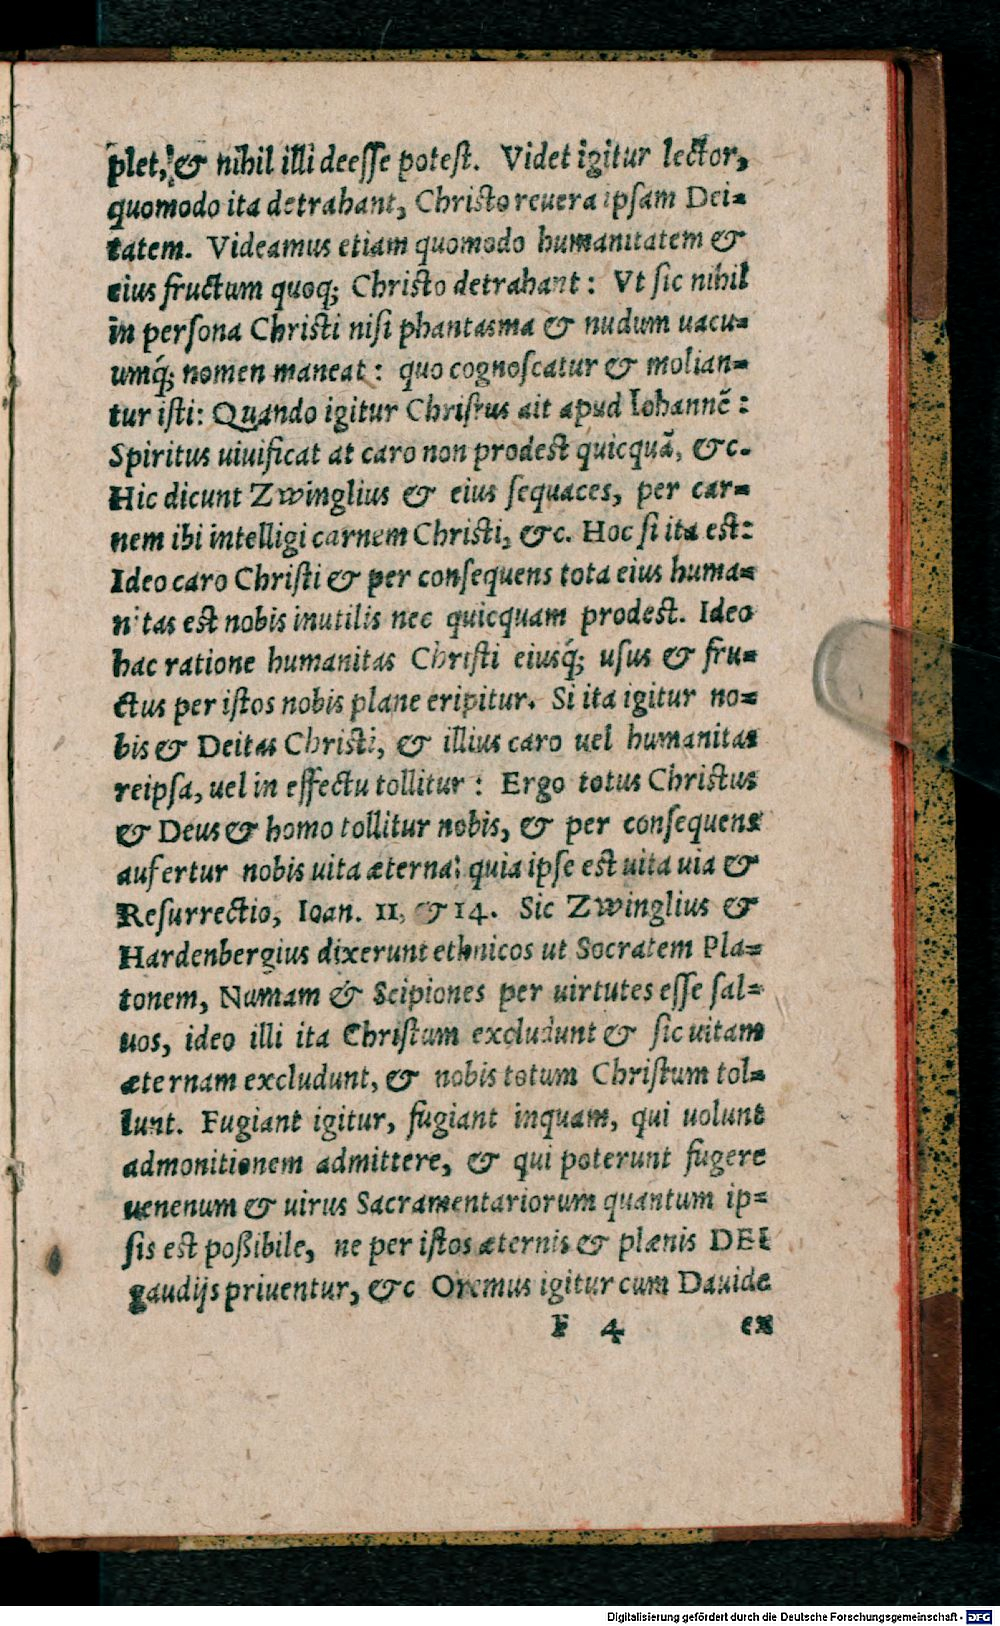 plet, & nihil illi deesse potest. Videt igitur lector,
quomodo ita detrahant, Christo reuera ipsam Dei=
tatem. Videamus etiam quomodo humanitatem &
eius fructum quoq; Christo detrahant: Vt sic nihil
in persona Christi nisi phantasma & nudum uacu=
umq́; nomen maneat: quo cognoscatur & molian=
tur isti: Quando igitur Christus ait apud Iohannẽ:
Spiritus uiuificat at caro non prodest quicquã, &c.
Hic dicunt Zwinglius & eius sequaces, per car=
nem ibi intelligi carnem Christi, &c. Hoc si ita est:
Ideo caro Christi & per consequens tota eius huma=
nitas est nobis inutilis nec quicquam prodest. Ideo
hac ratione humanitas Christi eiusq́; usus & fru=
ctus per istos nobis plane eripitur. Si ita igitur no=
bis & Deitas Christi, & illius caro uel humanitas
reipsa, uel in effectu tollitur: Ergo totus Christus
& Deus & homo tollitur nobis, & per consequens
aufertur nobis uita æterna: quia ipse est uita uia &
Resurrectio, Ioan. 11, & 14. Sic Zwinglius &
Hardenbergius dixerunt ethnicos ut Socratem Pla=
tonem, Numam & Scipiones per uirtutes esse sal=
uos, ideo illi ita Christum excludunt & sic uitam
æternam excludunt, & nobis totum Christum tol=
lunt. Fugiant igitur, fugiant inquam, qui uolunt
admonitionem admittere, & qui poterunt fugere
uenenum & uirus Sacramentariorum quantum ip=
sis est poßibile, ne per istos æternis & plænis DEI
gaudijs priuentur, &c Oremus igitur cum Dauide
F 4 ex
Digitalisierung gefördert durch die Deutsche Forschungsgemeinschaft - DFG